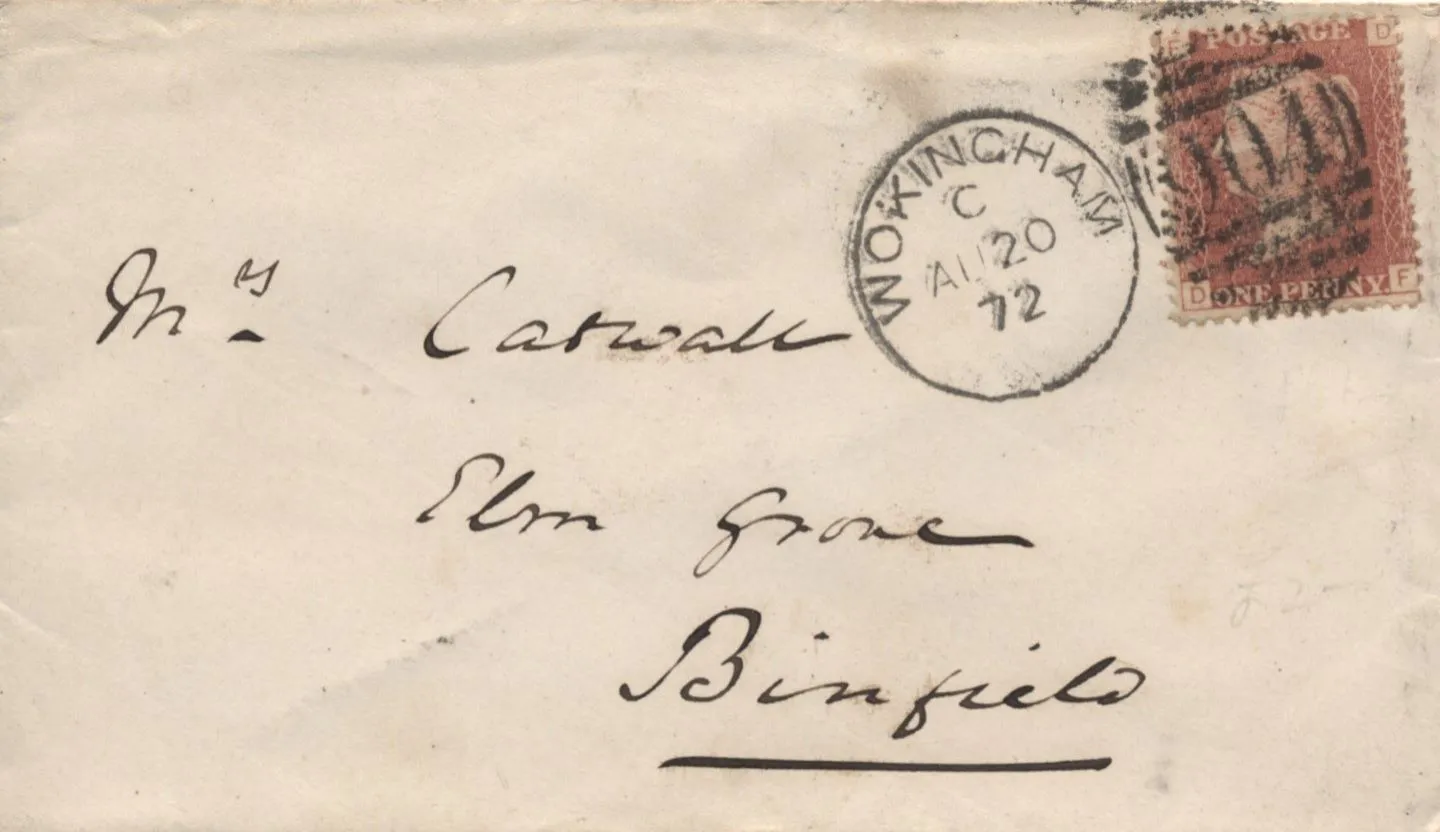 F POSTAGE D
D ONE PENNY. F
WOKINGHAM
C
AU 20
72
Mrs
Elm Grove
Binfield